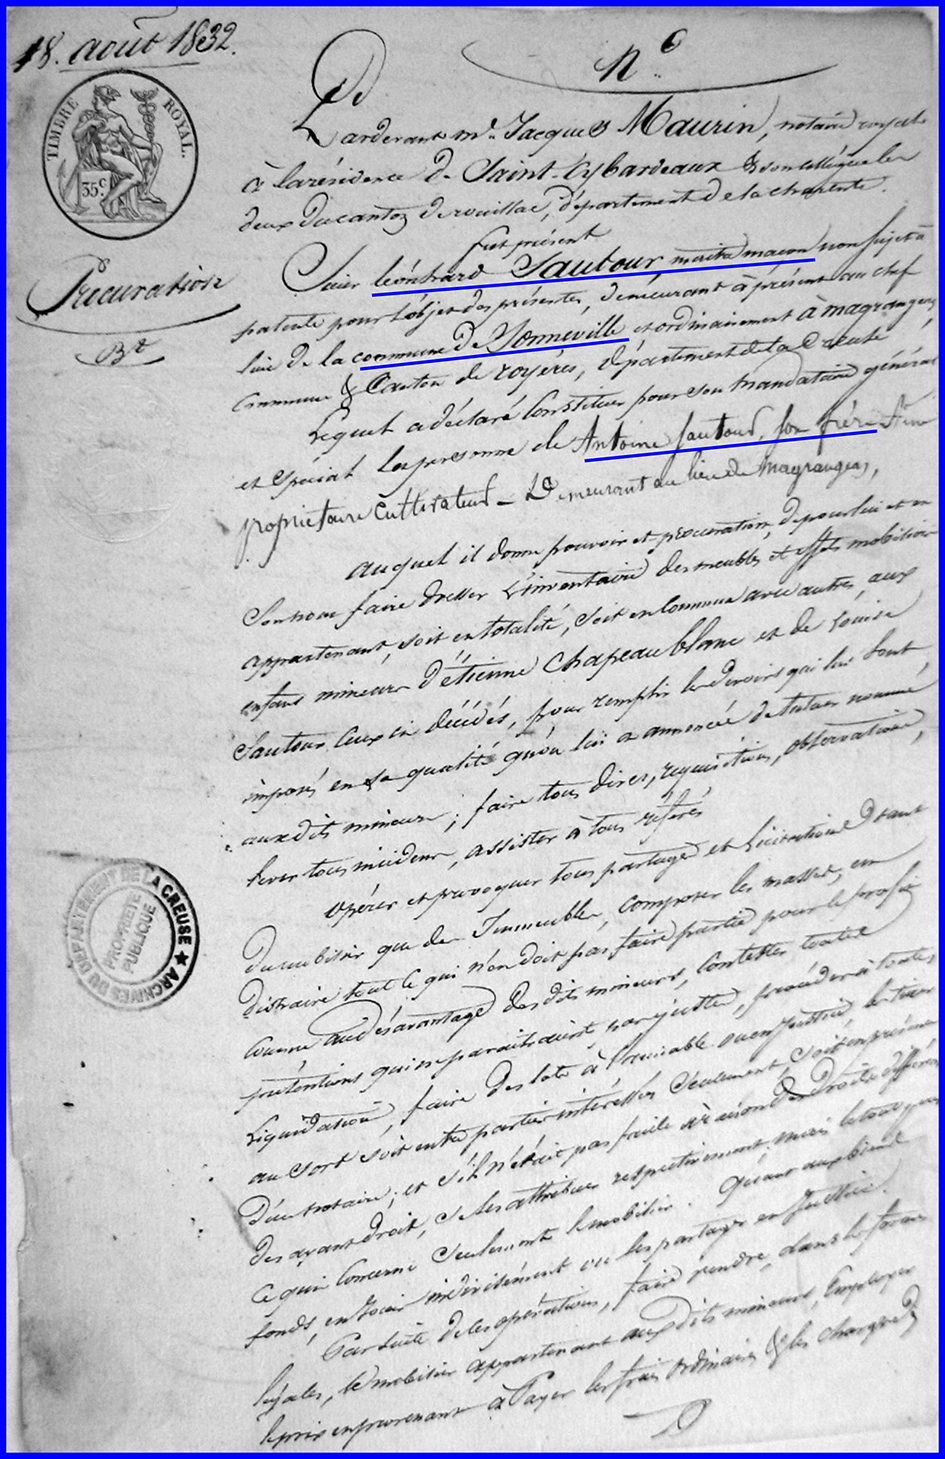 18. août 1832.
N.o
TIMBRE ROYAL.
35c
Procuration
Bt
Pardevant me. Jacques Maurin, notaire royal
à la résidence de Saint-Cybardeaux & son collègue les
deux du canton de rouillac, département de la charente.
fut présent
Sieur léonhard Sautour, maître maçon non sujet à
patente pour l'objet des présentes, demeurant à présent au chef
lieu de la commune de Sonneville et ordinairement à magranges
Commune & Canton de royéres, département de la Creuse
Lequel a déclaré Constituer pour son mandataire général
et spécial la personne de Antoine Sautour, son frère
propriétaire Cultivateur - Demeurant au lieu de Magranges,
auquel il donne pouvoir et procuration, de pour lui et en
Son nom faire dresser l'inventaire des meubles et effets mobiliers
appartenant, soit en totalité, soit en Commun avec autres, aux
enfans mineurs d'étienne Chapeaublanc et de Louise
Sautour, Ceux ci décédés, pour remplir les devoirs qui lui Sont
imposés en Sa qualité qu'on lui a annoncée de tuteur nommé
aux dits mineurs; faire tous dires, réquisitions, observations,
lever tous incidens, assister à tous référés
Opérer et provoquer tous partages et licitations tant
du mobilier que de Immeubles, Composer les masses, en
distraire tout ce qui n'en doit pas faire partie pour le profit
Comme au désavantage des dits mineurs, Contester toutes
prétentions qui en paraitraient, procéder à toutes
Liquidations, faire des lots à l'amiable ou en Justice, les tirer
au Sort soit entre parties intéressées Seulement, Soit en présence
d'un notaire; et s'il n'était pas facile à raison des droits différens
des ayans droit, les attribuer respectivement mais le tout pour
Ce qui Concerne Seulement le mobilier. Quant aux biens
fonds, en Jouir indivisément ou les partager en Justice.
Par suite de ces opérations, faire vendre, dans les formes
légales, le mobilier appartenant aux dits mineurs, Employer
le prix en provenant à Payer les frais ordinaires & les charges
ARCHIVES DU DÉPARTEMENT DE LA CREUSE
PROPRIÉTÉ
PUBLIQUE